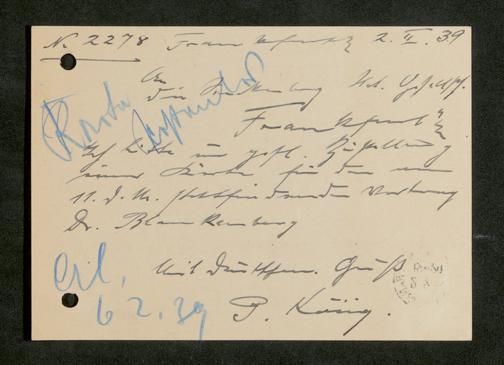 N. 2278 Frankfurt 2. II. 39
An
die Senckenberg. Nat. Gesellsch.
Frankfurt
Karte
Ich bitte um gefl. Zustellung
einer Karte für den am
11. d. M. stattfindenden Vortrag
Dr. Blankenburg
Mit Deutschem Gruß
erl.
6 2. 39
P. König.